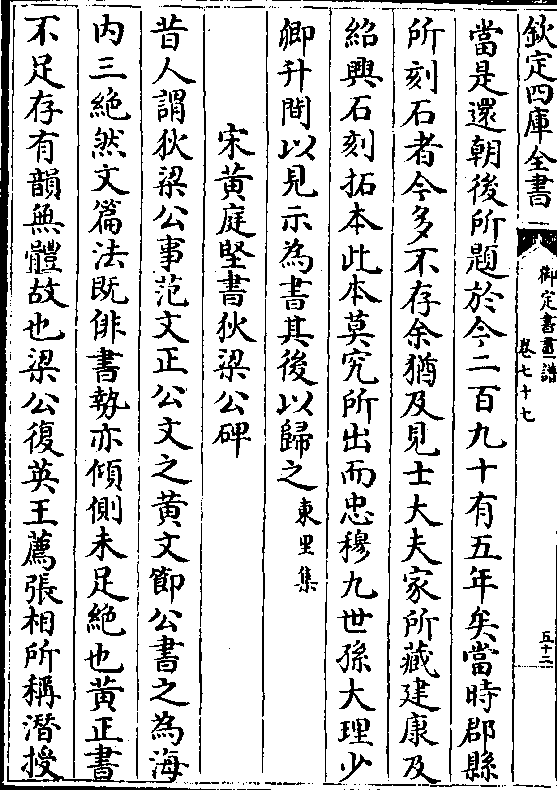 欽定四庫全書
御定書畫譜
卷七十七
五十二
當是還朝後所題於今二百九十有五年矣當時郡縣
所刻石者今多不存余猶及見士大夫家所藏建康及
紹興石刻拓本此本莫究所出而忠穆九世孫大理少
卿升間以見示為書其後以歸之東里集
宋黄庭堅書狄梁公碑
昔人謂狄梁公事范文正公文之黄文節公書之為海
内三絶然文篇法既俳書勢亦傾側未足絶也黄正書
不足存有韻無體故也梁公復英王薦張相所稱潜授